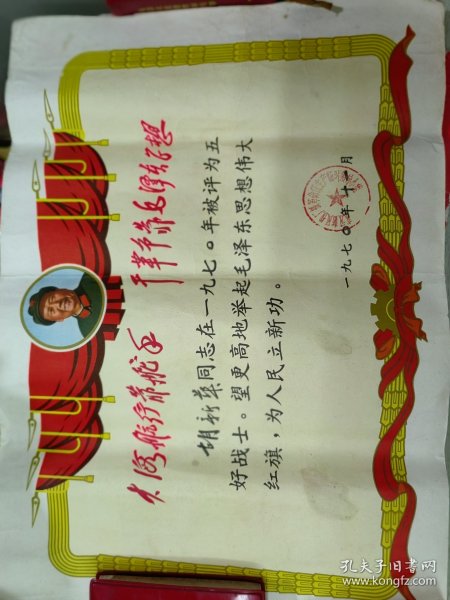 大海航行靠舵手 干革命靠毛泽东思想
胡新华同志在一九七〇年被评为五
好战士。望更高地举起毛泽东思想伟大
红旗，为人民立新功。
一九七〇年十二月
孔夫子旧书网
www.kongfz.com